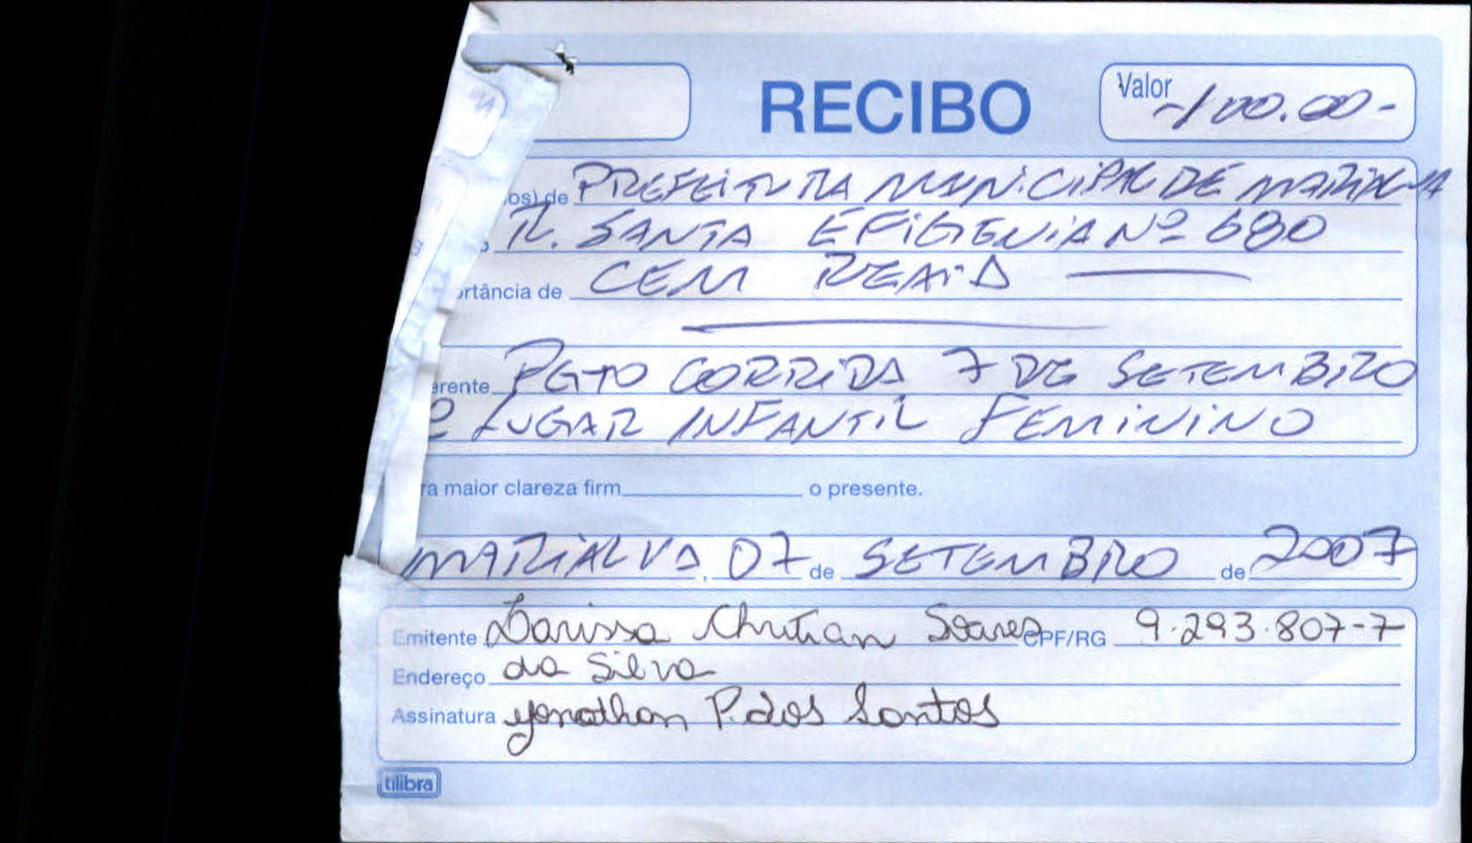 RECIBO
Valor -100.00-
os) de PREFEITURA MUNICIPAL DE MARIALVA
R. SANTA EFIGENIA Nº 680
ortância de CEM REAIS
erente PGTO CORRIDA 7 DE SETEMBRO
º LUGAR INFANTIL FEMININO
ra maior clareza firm o presente.
MARIALVA, 07 de SETEMBRO de 2007
Emitente Larissa Chritian Soares CPF/RG 9.293.807-7
Endereço da Silva
Assinatura Jonathan P. dos Santos
tilibra